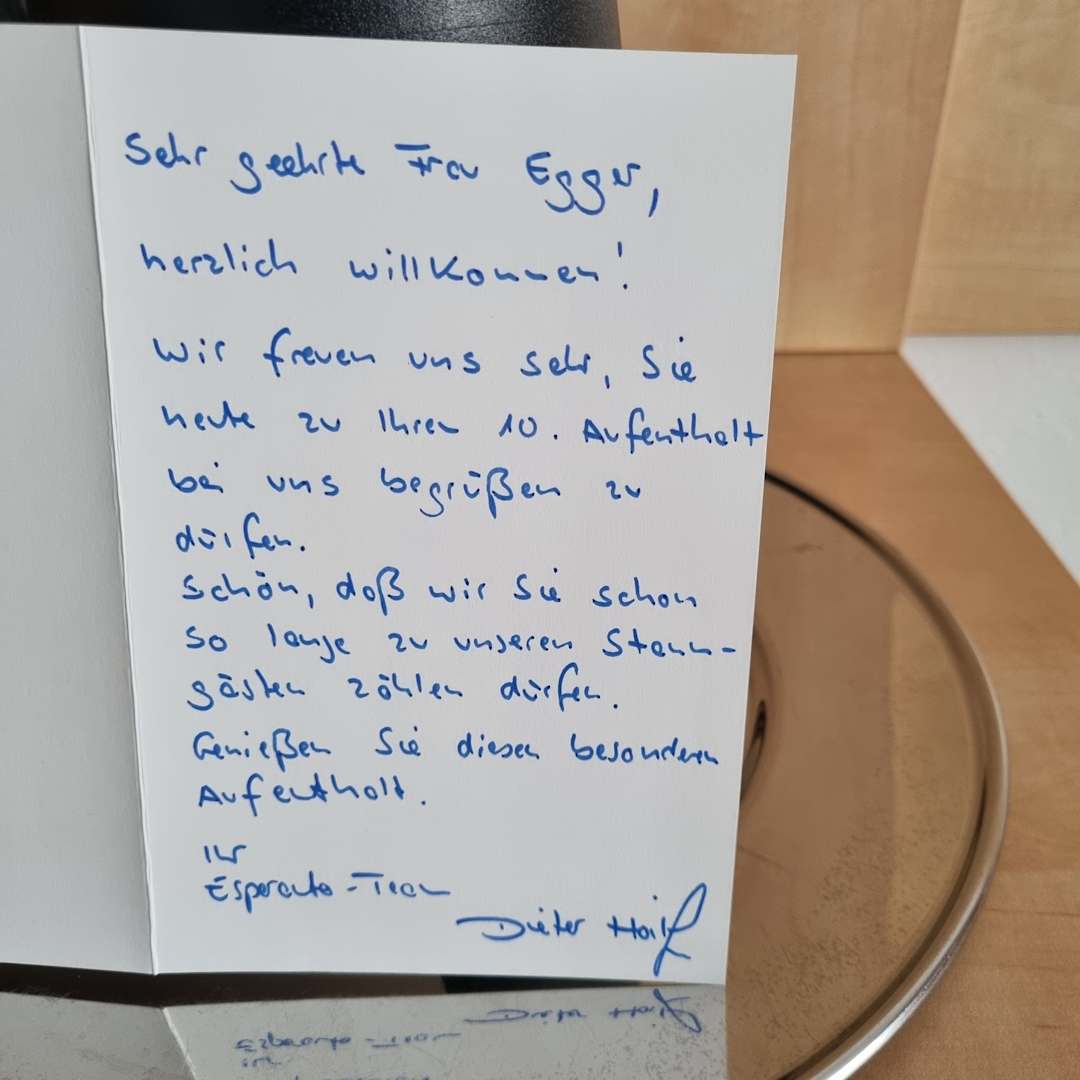 Sehr geehrte Frau Egger,
herzlich willkommen!
Wir freuen uns sehr, Sie
heute zu Ihren 10. Aufenthalt
bei uns begrüßen zu
dürfen.
Schön, daß wir Sie schon
so lange zu unseren Stamm-
gästen zählen dürfen.
Genießen Sie diesen besonderen
Aufenthalt.
Ihr
Esperanto-Team
Dieter